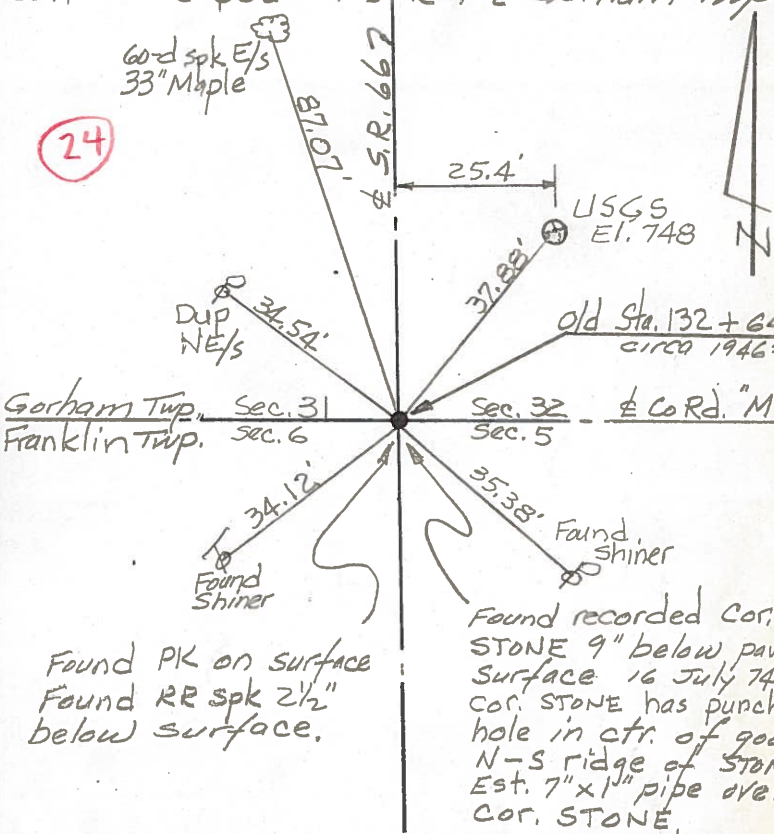 Gorham Twp
60-d spk E/s
33" Maple
87.07'
℄ S.R. 667
24
25.4'
USGS
El. 748
N
37.88'
Dup
NE/s
34.54'
Old Sta. 132 + 64
circa 1946
Gorham Twp. Sec. 31 Sec. 32 ℄ Co Rd. "M
Franklin Twp. Sec. 6 Sec. 5
34.12'
35.38'
Found
Shiner
Found
Shiner
Found PK on surface
Found RR spk 2½"
below surface.
Found recorded Cor.
STONE 9" below pav
Surface 16 July 74
Cor. STONE has punch
hole in ctr. of goo
N-S ridge of STON
Est. 7"x1" pipe ove
Cor. STONE.